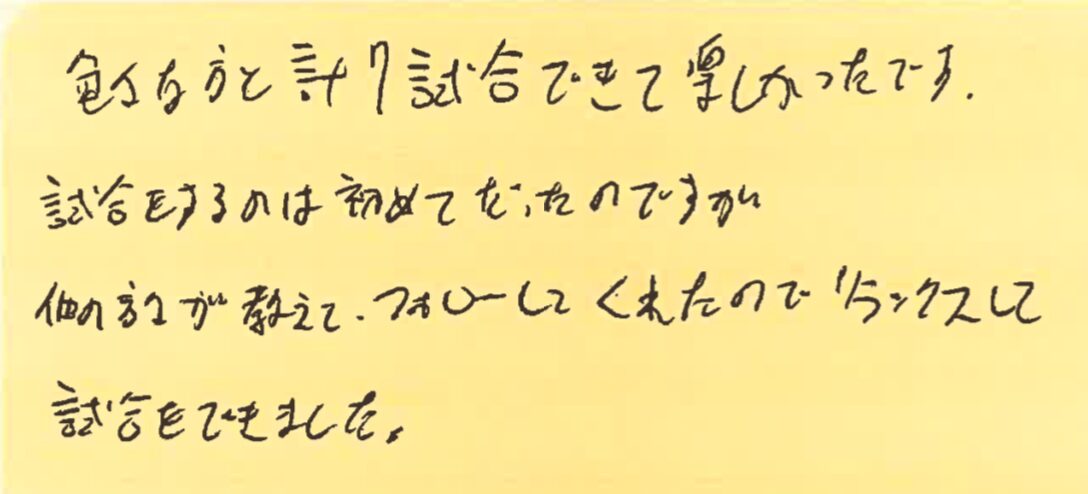 色々な方と計7試合できて楽しかったです.
試合をするのは初めてだったのですが
他の方々が教えて、フォローしてくれたのでリラックスして
試合をできました。